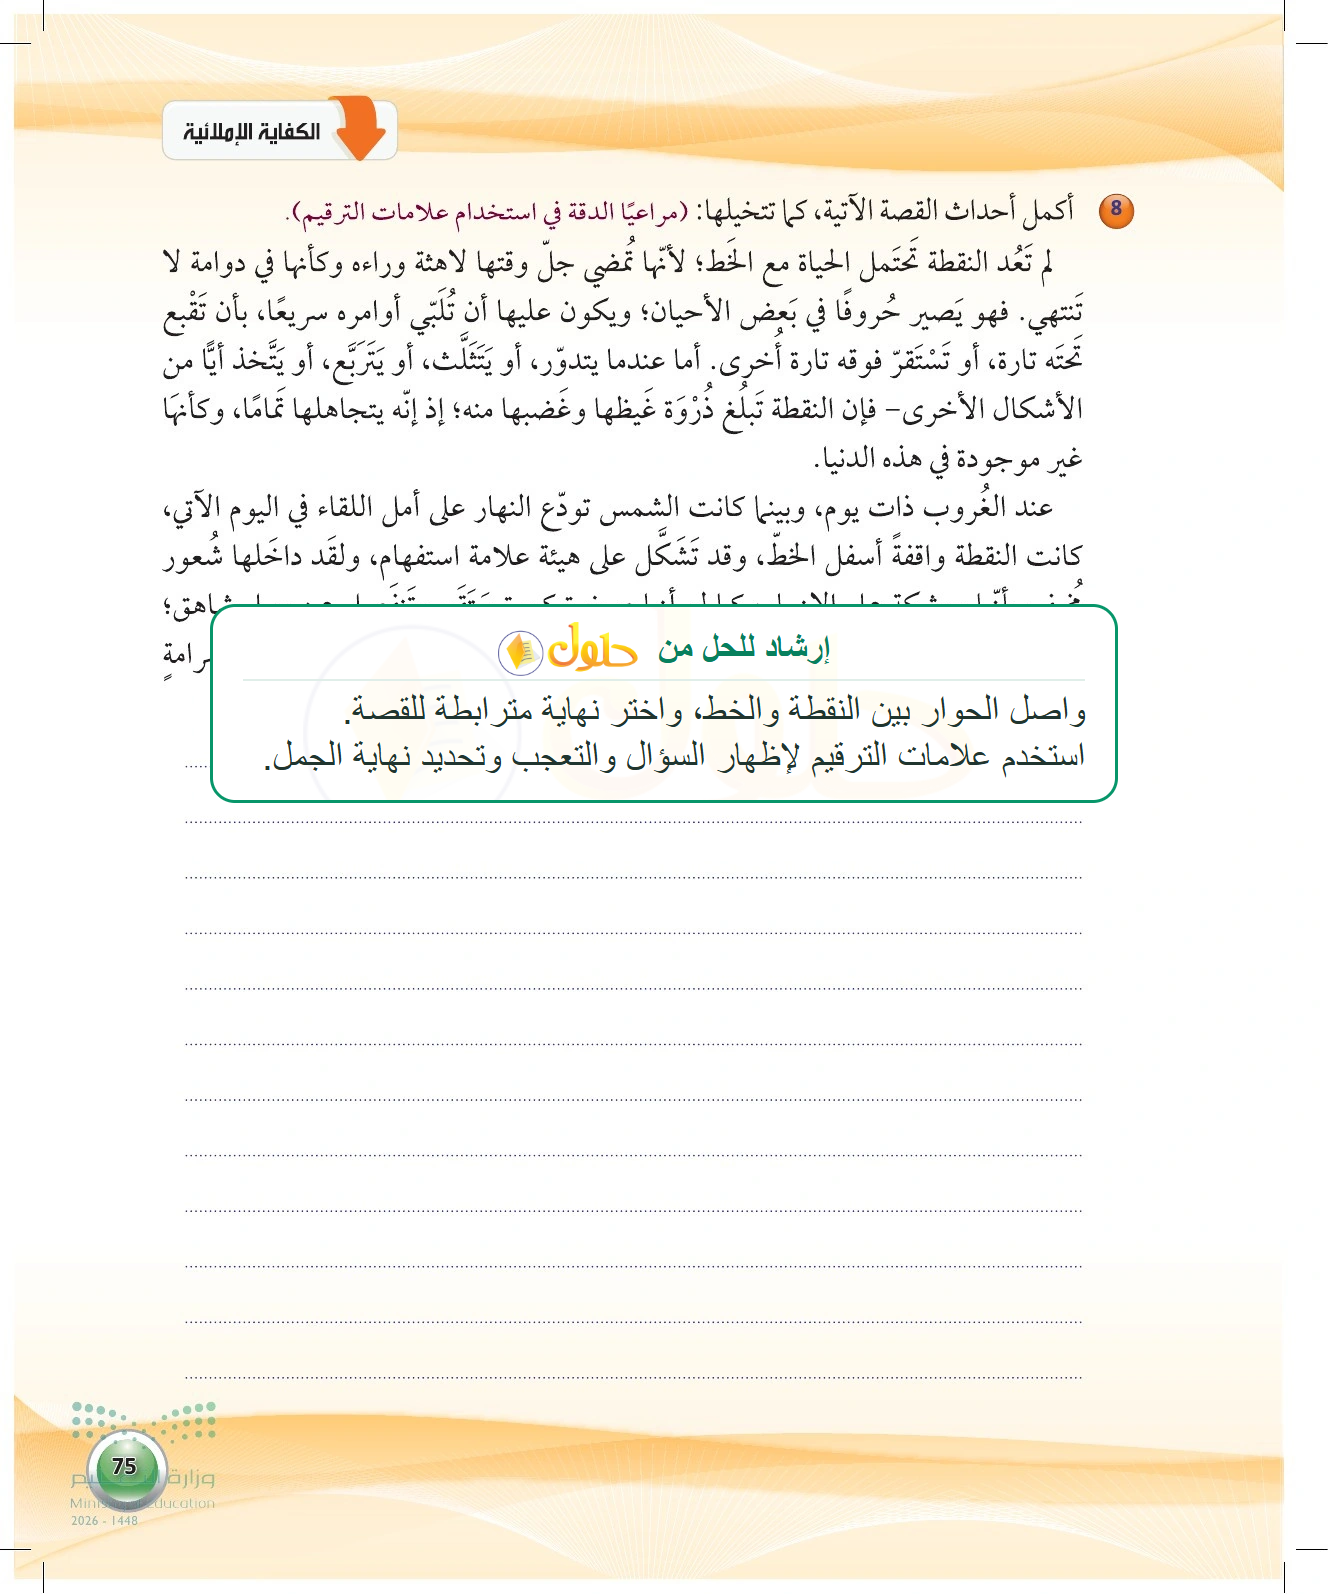 الكفاية الإملائية
8 أكمل أحداث القصة الآتية، كما تتخيلها: (مراعيًا الدقة في استخدام علامات الترقيم).
لم تَعُد النقطة تَحتَمل الحياة مع الخَط؛ لأنّها تُمضي جلّ وقتها لاهثة وراءه وكأنها في دوامة لا
تَنتهي. فهو يَصير حُروفًا في بَعض الأحيان؛ ويكون عليها أن تُلَبّي أوامره سريعًا، بأن تَقْبع
تَحتَه تارة، أو تَسْتَقرّ فوقه تارة أُخرى. أما عندما يتدوّر، أو يَتَثَلَّث، أو يَتَرَبَّع، أو يَتَّخذ أيًّا من
الأشكال الأخرى- فإن النقطة تَبلُغ ذُرْوَة غَيظها وغَضبها منه؛ إذ إنّه يتجاهلها تَمامًا، وكأنهَا
غير موجودة في هذه الدنيا.
عند الغُروب ذات يوم، وبينما كانت الشمس تودّع النهار على أمل اللقاء في اليوم الآتي،
كانت النقطة واقفةً أسفل الخطّ، وقد تَشَكَّل على هيئة علامة استفهام، ولقَد داخَلها شُعور
شاهق؛
إرشاد للحل من حلول
واصل الحوار بين النقطة والخط، واختر نهاية مترابطة للقصة.
استخدم علامات الترقيم لإظهار السؤال والتعجب وتحديد نهاية الجمل.
75
وزارة التعليم
Ministry of Education
2026 - 1448